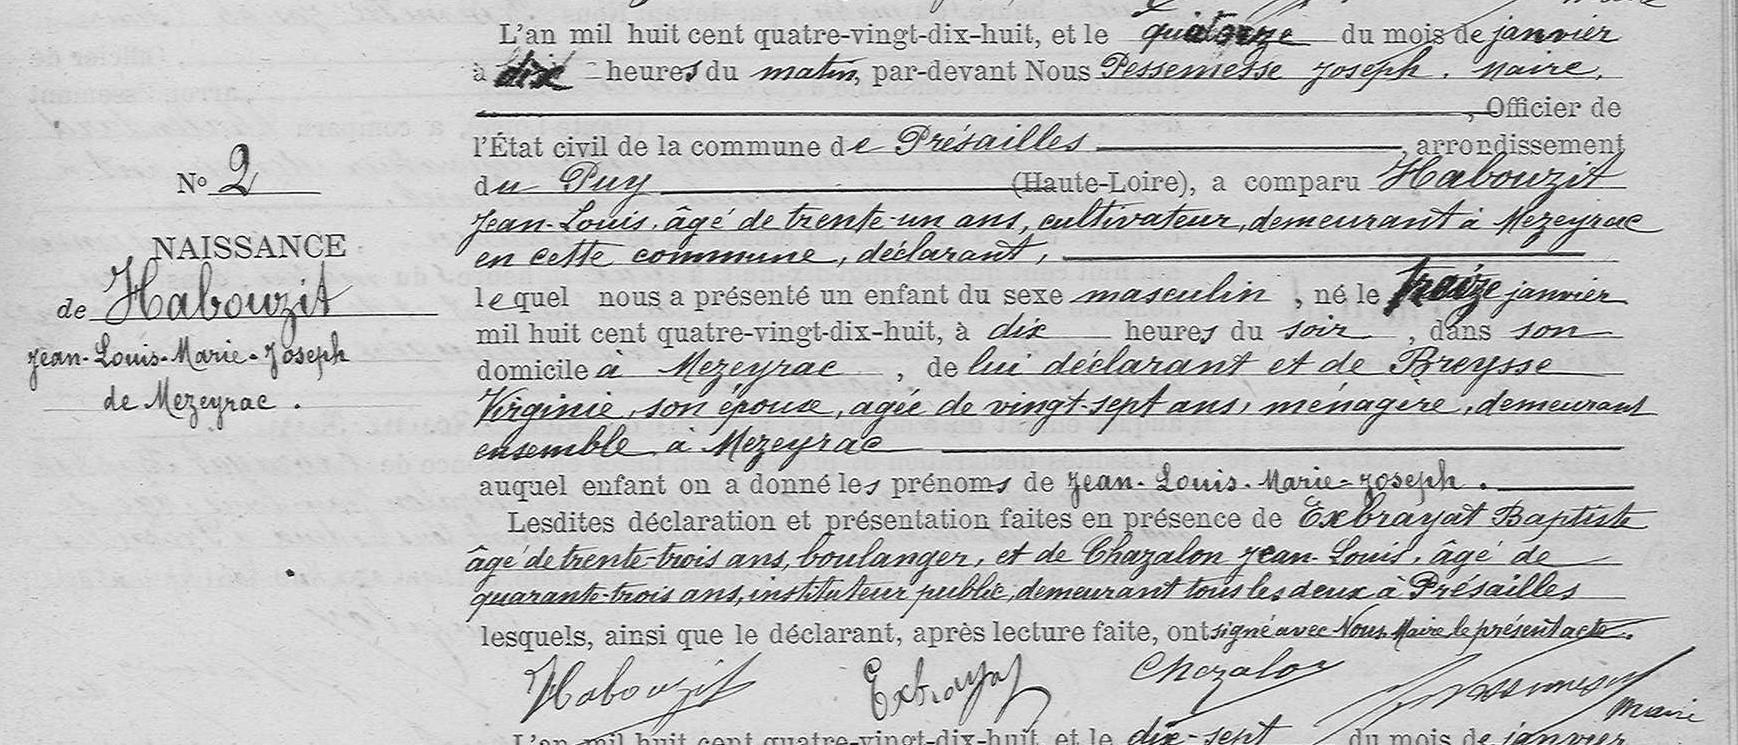 L'an mil huit cent quatre-vingt-dix-huit, et le quatorze du mois de janvier
à dix heures du matin, par-devant Nous Pessemesse Joseph. Maire,
, Officier de
l'État civil de la commune de Présailles, arrondissement
du Puy (Haute-Loire), a comparu Habouzit
Jean-Louis, âgé de trente-un ans, cultivateur, demeurant à Mezeyrac
en cette commune, déclarant,
lequel nous a présenté un enfant du sexe masculin, né le treize janvier
mil huit cent quatre-vingt-dix-huit, à dix heures du soir, dans son
domicile à Mezeyrac, de lui déclarant et de Breysse
Virginie, son épouse, agée de vingt-sept ans, ménagère, demeurant
ensemble à Mezeyrac
auquel enfant on a donné les prénoms de Jean-Louis-Marie-Joseph.
Lesdites déclaration et présentation faites en présence de Exbrayat Baptiste
âgé de trente-trois ans, boulanger, et de Chazalon Jean-Louis, âgé de
quarante-trois ans, instituteur public, demeurant tous les deux à Présailles
lesquels, ainsi que le déclarant, après lecture faite, ont signé avec Nous Maire le présent acte.
Habouzit Exbrayat Chazalon Pessemesse
maire
N° 2
NAISSANCE
de Habouzit
Jean-Louis-Marie-Joseph
de Mezeyrac.
L'an mil huit cent quatre-vingt-dix-huit, et le dix-sept du mois de janvier